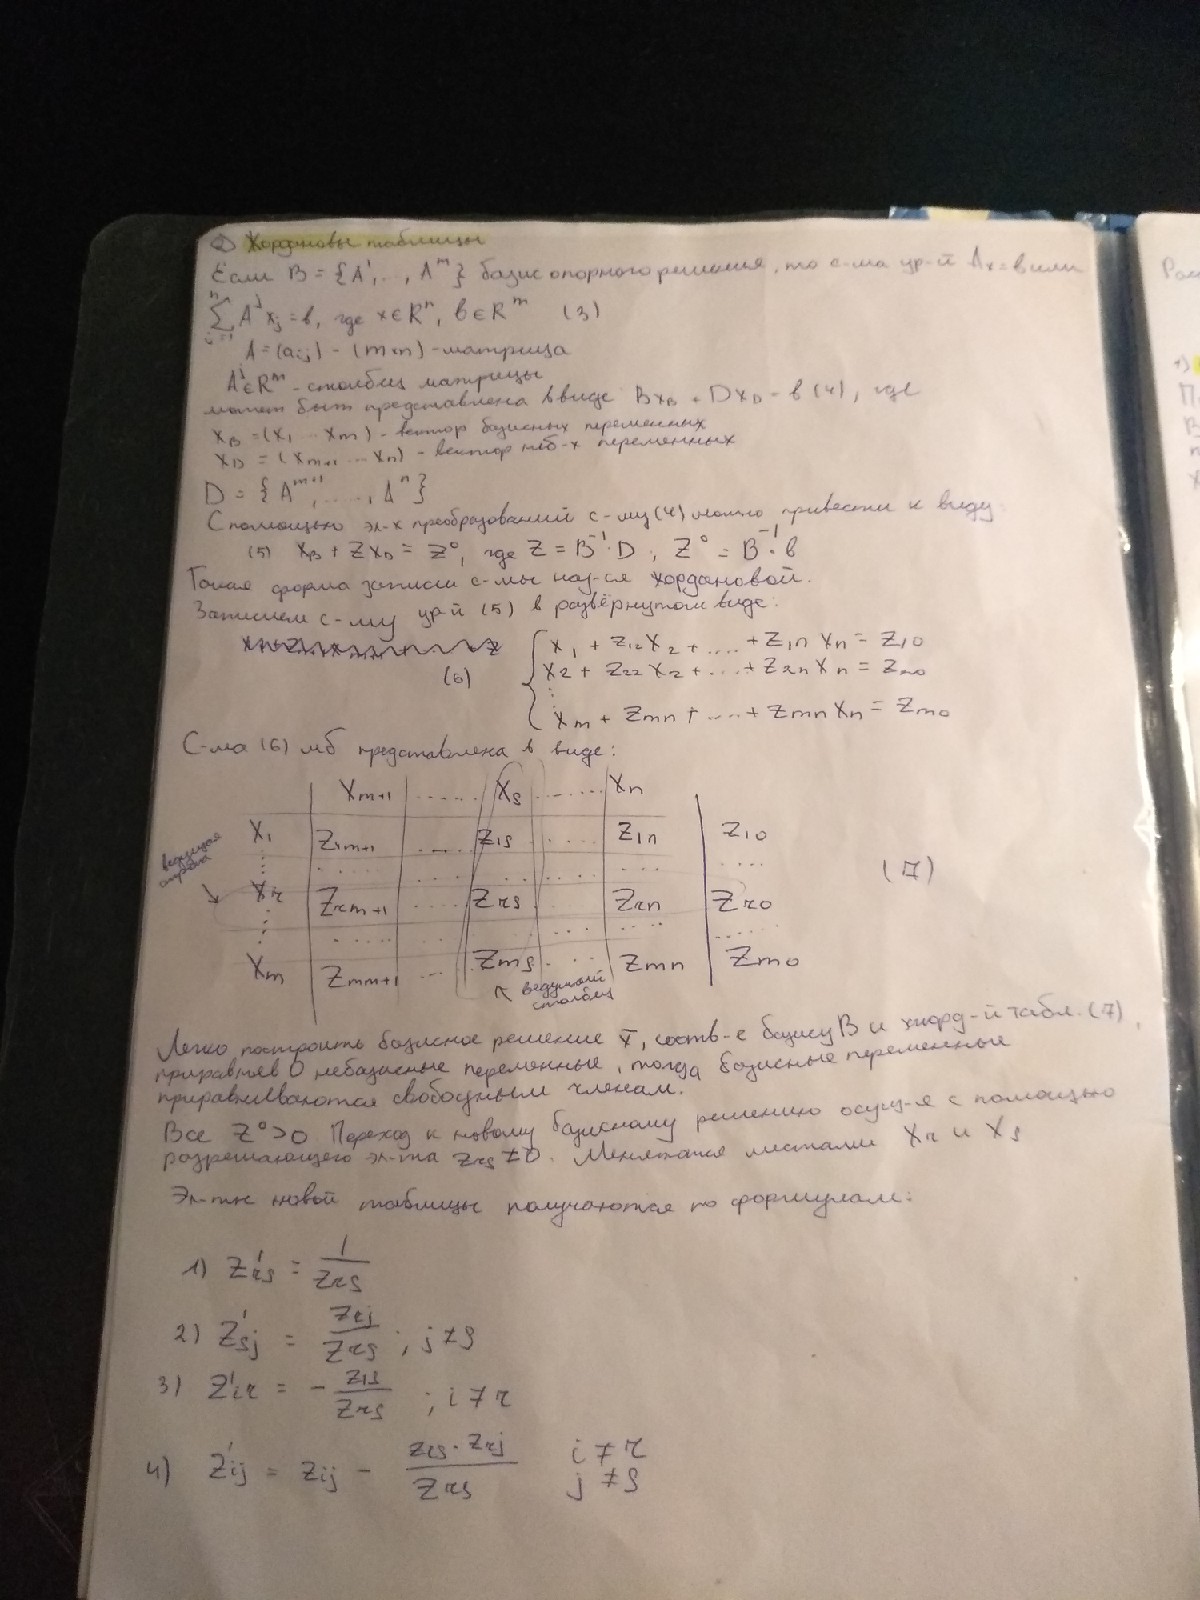 2) Жордановы таблицы
Если B = {A¹,..., Aᵐ} базис опорного решения, то с-ма ур-й Ax=в или
∑ Aʲxⱼ = в, где x∈Rⁿ, в∈Rᵐ (3)
A=(aᵢⱼ) - (m×n) - матрица
Aʲ∈Rᵐ - столбец матрицы
может быт представлена в виде Bx_B + Dx_D = в (4), где
x_B = (x₁ ... xₘ) - вектор базисных переменных
x_D = (xₘ₊₁ ... xₙ) - вектор неб-х переменных
D = {Aᵐ⁺¹, ....., Aⁿ}
С помощью эл-х преобразований с-му (4) можно привести к виду:
(5) x_B + Zx_D = Z⁰, где Z = B⁻¹·D, Z⁰ = B⁻¹·в
Такая форма записи с-мы наз-ся жордановой.
Запишем с-му ур-й (5) в развёрнутом виде:
x₁ + z₁₂x₂ + .... + z₁ₙxₙ = z₁₀
x₂ + z₂₂x₂ + .... + z₂ₙxₙ = z₂₀
(6)
⋮
xₘ + zₘₙ + .... + zₘₙxₙ = zₘ₀
С-ма (6) мб представлена в виде:
xₘ₊₁ ..... xₛ ...... xₙ
x₁ z₁ₘ₊₁ ..... z₁ₛ .... z₁ₙ z₁₀
ведущая строка
xᵣ zᵣₘ₊₁ ..... zᵣₛ .... zᵣₙ zᵣ₀ (7)
xₘ zₘₘ₊₁ ... zₘₛ ... zₘₙ zₘ₀
ведущий столбец
Легко построить базисное решение x̄, соотв-е базису B и жорд-й табл. (7),
приравняв 0 небазисные переменные, тогда базисные переменные
приравниваются свободным членам.
Все Z⁰>0. Переход к новому базисному решению осущ-я с помощью
разрешающего эл-та zᵣₛ ≠ 0. Меняются местами xᵣ и xₛ
Эл-ты новой таблицы получаются по формулам:
1) z'ᵣₛ = 1/zᵣₛ
2) z'ₛⱼ = zᵣⱼ/zᵣₛ ; j ≠ s
3) z'ᵢᵣ = - zᵢₛ/zᵣₛ ; i ≠ r
4) z'ᵢⱼ = zᵢⱼ - zᵢₛ·zᵣⱼ/zᵣₛ i ≠ r
j ≠ s